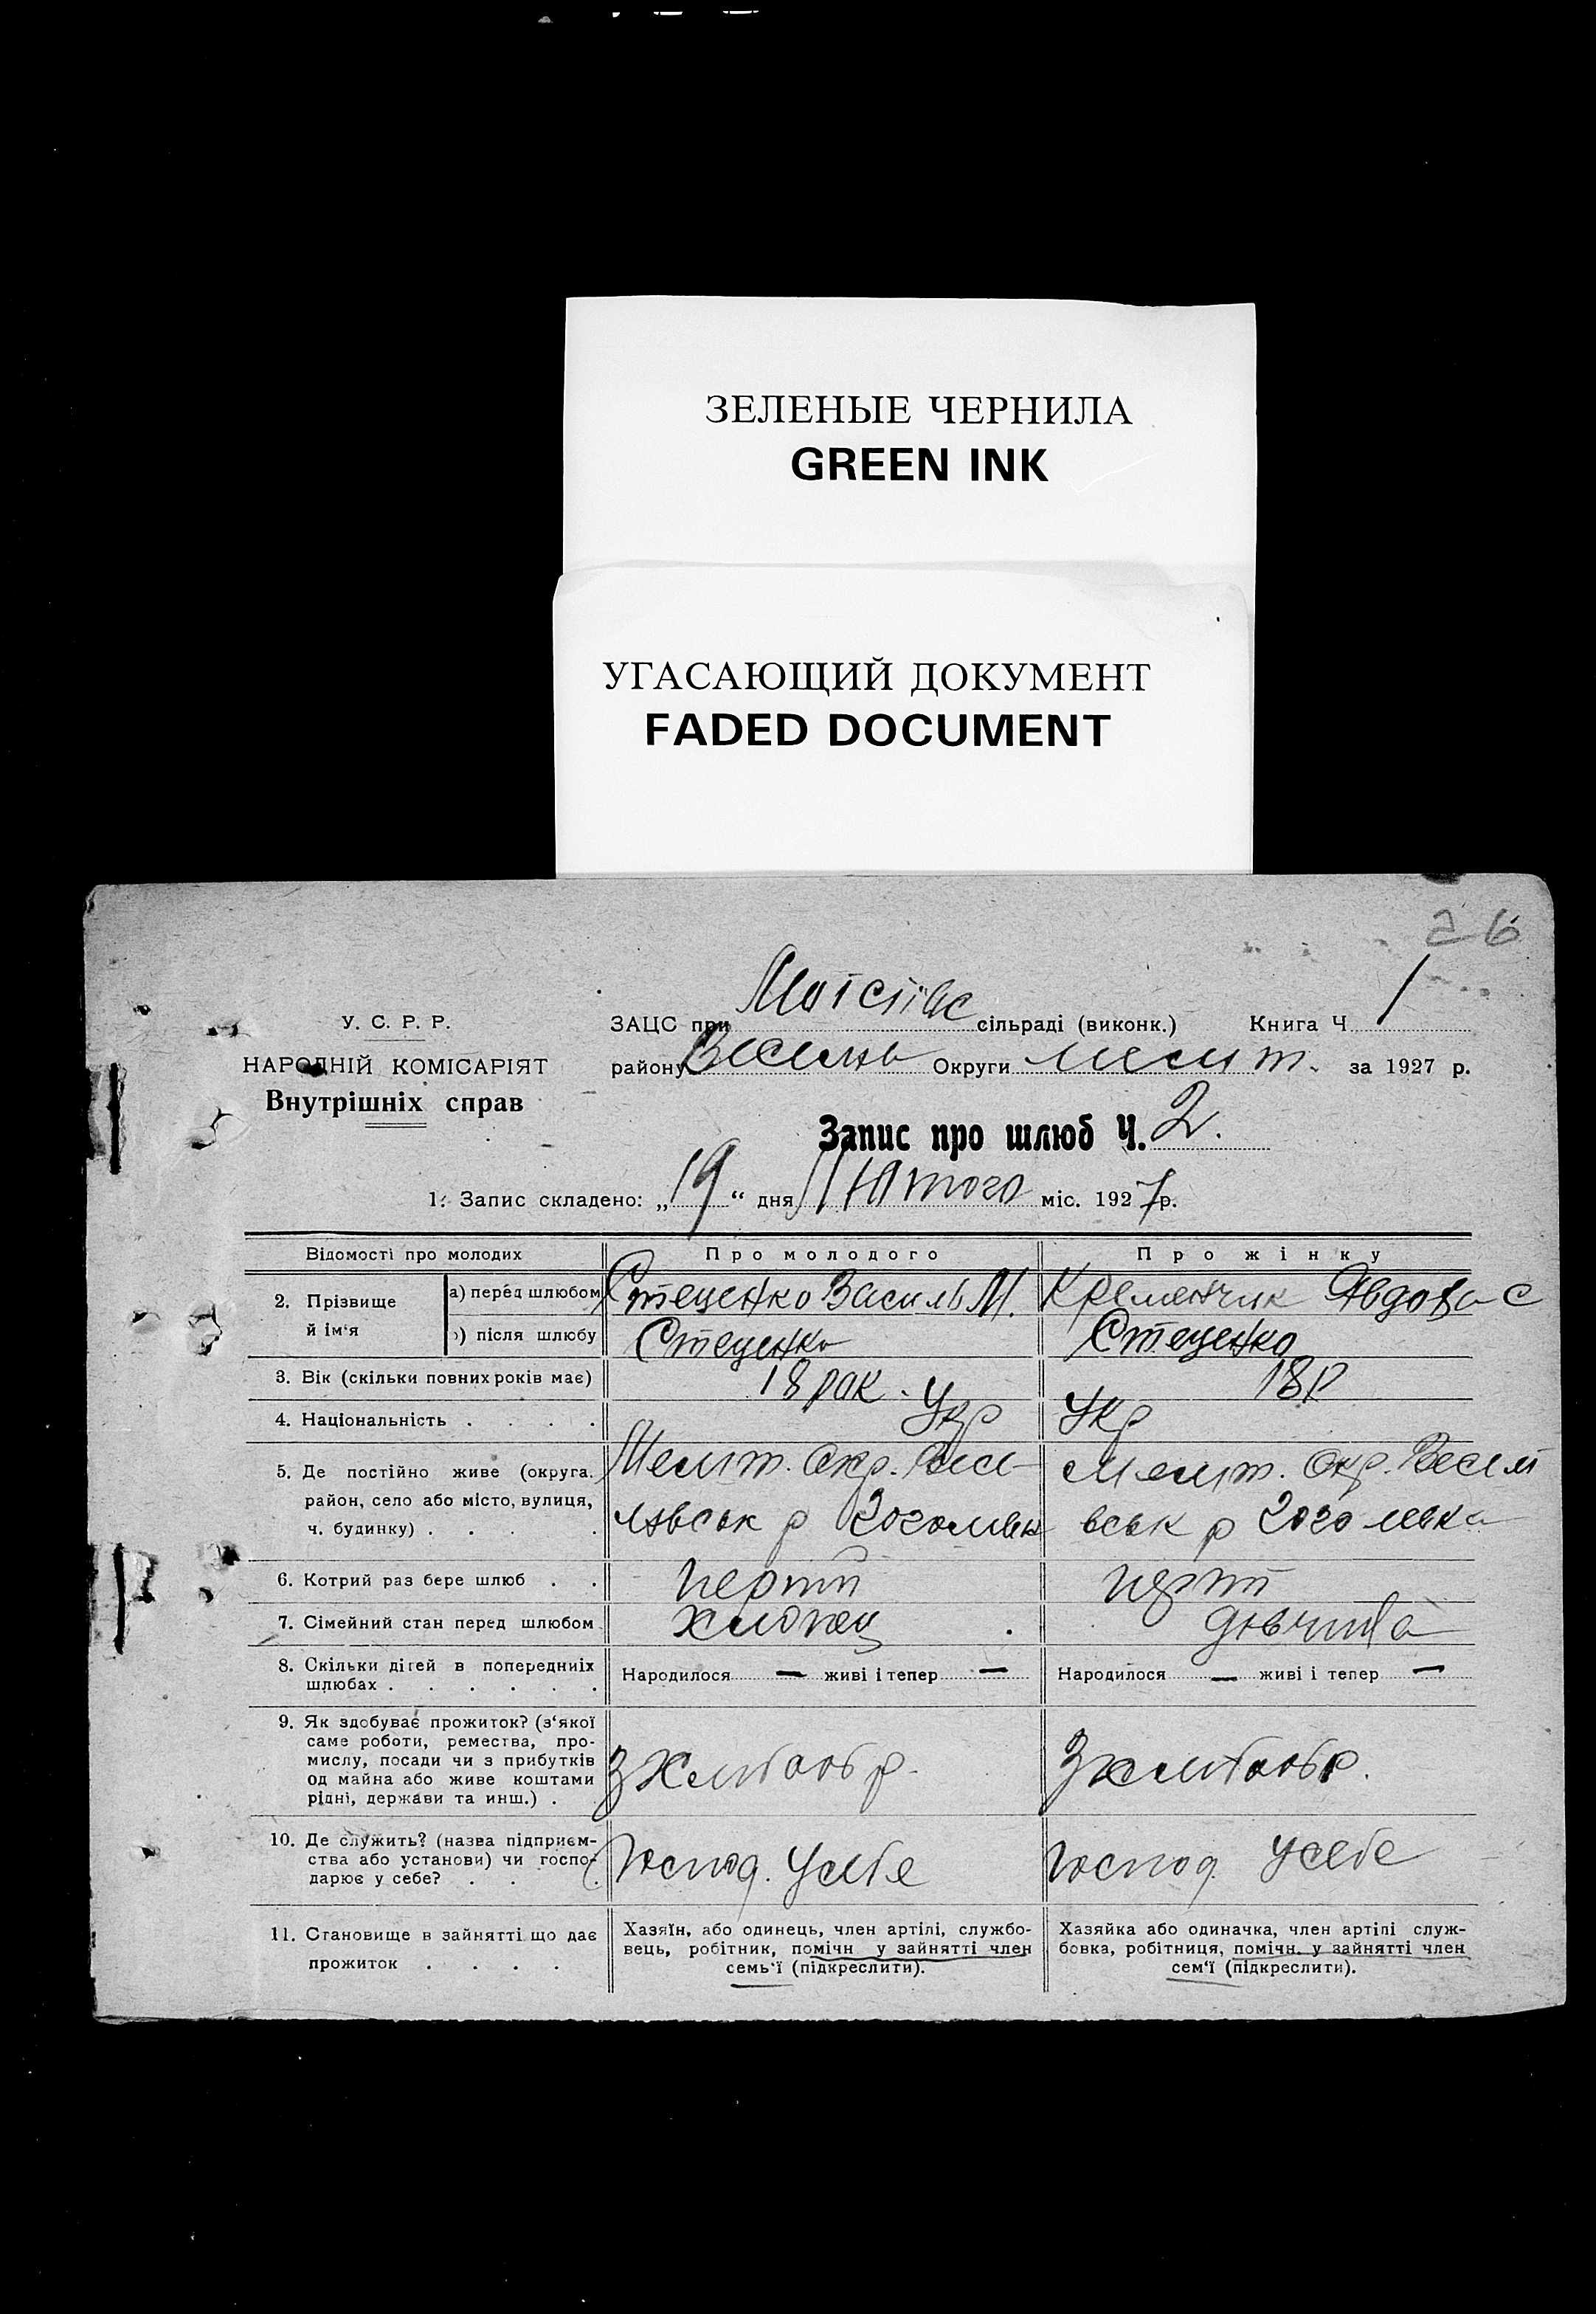 ЗЕЛЕНЫЕ ЧЕРНИЛА
GREEN INK
УГАСАЮЩИЙ ДОКУМЕНТ
FADED DOCUMENT
26
У. С. Р. Р.
НАРОДНІЙ КОМІСАРІЯТ
Внутрішніх справ
ЗАЦС при Моісіївс сільраді (виконк.) Книга Ч 1
району Округи Меліт. за 1927 р.
Запис про шлюб Ч. 2.
1. Запис складено: „19“ дня Лютого міс. 1927 р.
Відомості про молодих Про молодого Про жінку
2. Прізвище й ім‘я
а) перед шлюбом Стеценко Василь М. Кременчик Явдоха С
б) після шлюбу Стеценко Стеценко
3. Вік (скільки повних років має) 18 рок. 18 р
4. Національність . . . . Укр Укр
5. Де постійно живе (округа. Меліт. Окр. Весе- Меліт. Окр. Весел
район, село або місто, вулиця,
ч. будинку) . . . . лівськ р вськ р
6. Котрий раз бере шлюб . . перший перший
7. Сімейний стан перед шлюбом хлопец дівчина
8. Скільки дітей в попередниіх
шлюбах . . . . . . Народилося — живі і тепер — Народилося — живі і тепер —
9. Як здобуває прожиток? (з‘якої
саме роботи, ремества, про-
мислу, посади чи з прибутків
од майна або живе коштами
рідні, держави та инш.) . З хлібооб р. З хлібообр.
10. Де служить? (назва підприєм-
ства або установи) чи госпо-
дарює у себе? . . . Господ. У себе Господ. У себе
11. Становище в зайнятті що дає
прожиток . . . .
Хазяїн, або одинець, член артілі, службо-
вець, робітник, помічн у зайнятті член
семь‘ї (підкреслити).
Хазяйка або одиначка, член артілі служ-
бовка, робітниця, помічн. у зайнятті член
сем‘ї (підкреслити).